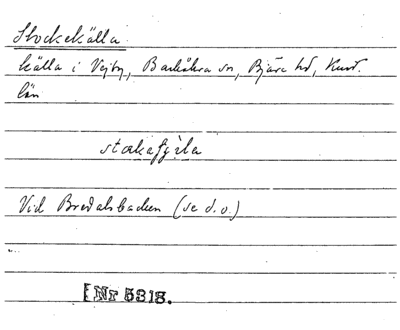 Stockekälla
källa i Vejby, Barkåkra sn, Bjäre hd, Krist.
län
stokafjɩ̀la
Vid Bredalsbacken (se d.o.)
[Nr 5318.